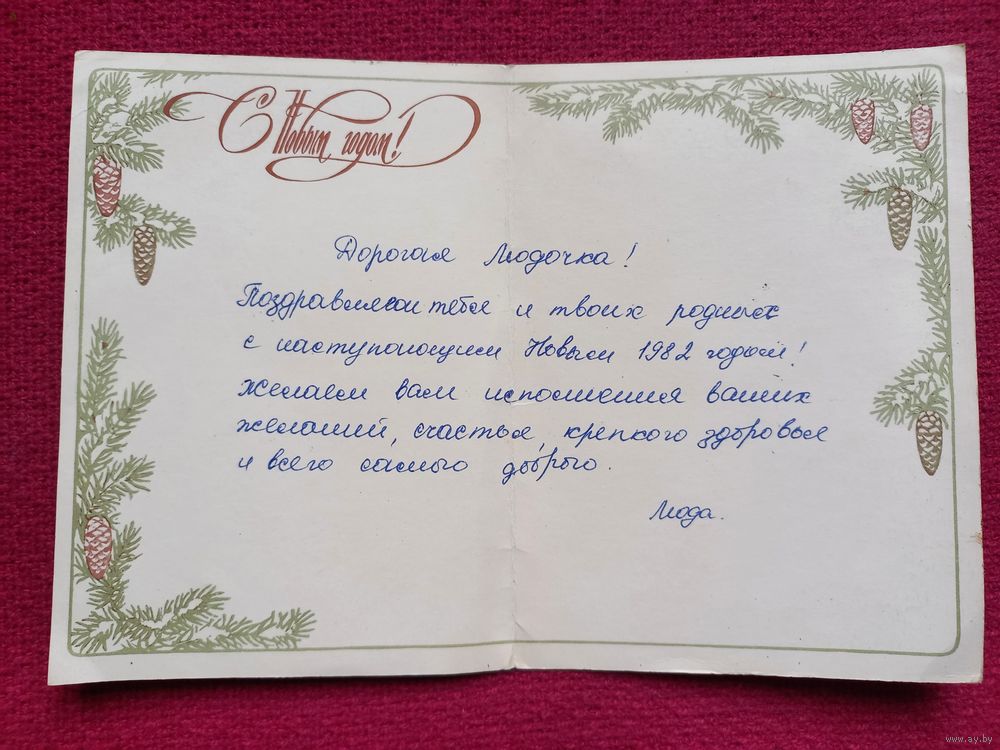 С Новым годом!
Дорогая Людочка!
Поздравляем тебя и твоих родных
с наступающим Новым 1982 годом!
Желаем вам исполнения ваших
желаний, счастья, крепкого здоровья
и всего самого доброго.
Люда.
www.ay.by